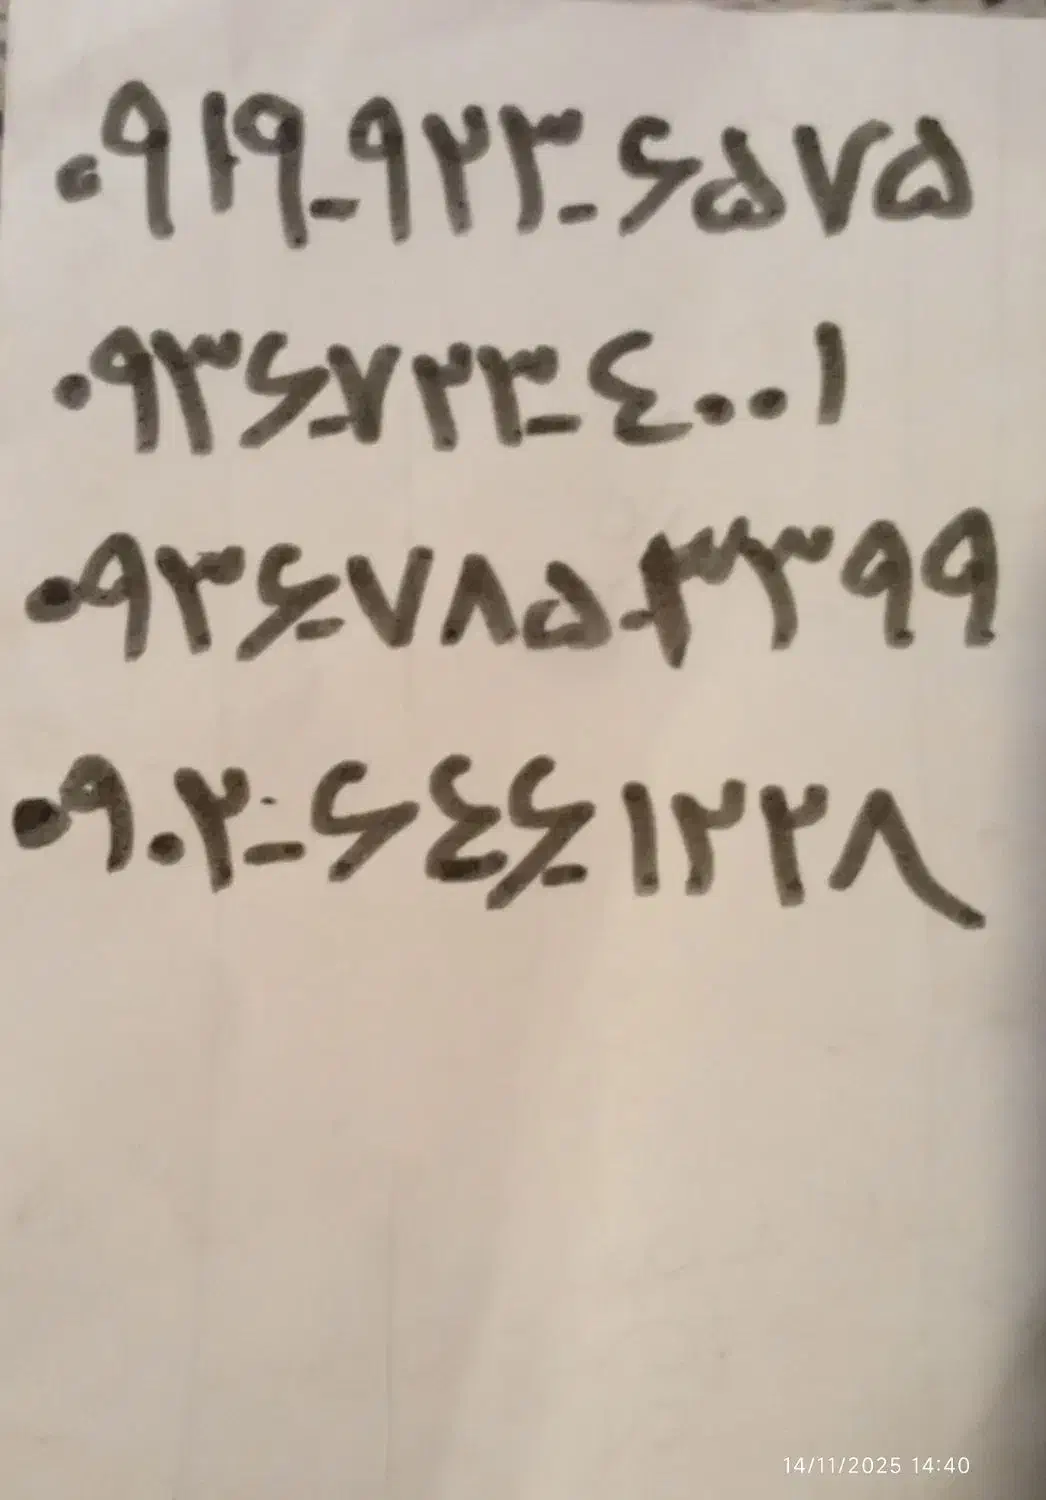 ۰۹۱۹-۹۲۳-۶۵۷۵
۰۹۳۶-۷۲۳-٤۰۰۱
۰۹۳۶-۷۸۵-۳۳۹۹
۰۹۰۲-۶٤۶-۱۲۲۸
14/11/2025 14:40